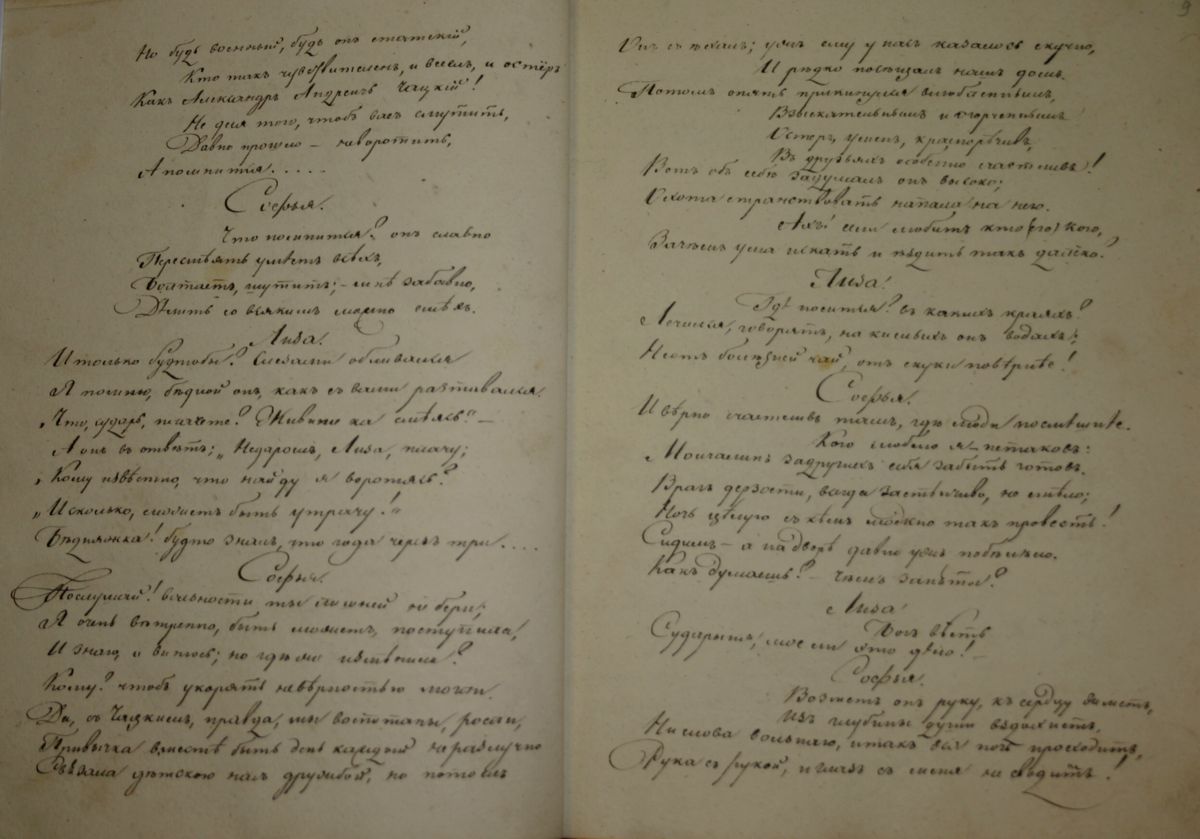 Но будь военный, будь онъ статскій,
Кто такъ чувствителенъ, и веселъ, и остёръ
Какъ Александръ Андреичъ Чацкій!
Не для того, чтобъ васъ смутить,
Давно прошло — неворотить,
А помнится.....
Софья.
Что помнится? онъ славно
Пересмѣять умѣетъ всѣхъ,
Болтаетъ, шутитъ; — мнѣ забавно,
Дѣлить со всякимъ можно смѣхъ.
Лиза!
И только будтобы? Слезами обливался
Я помню, бѣдной онъ, какъ съ вами разставался.
„Что, сударь, плачете? Живите ка смѣясь" —
А онъ въ отвѣтъ; „Недаромъ, Лиза, плачу;
„Кому извѣстно, что найду я воротясь?
„И сколько, можетъ быть утрачу!"
Бѣдняжка! будто зналъ, что года черезъ три....
Софья.
Послушай! вольности ты лишней не бери;
Я очень вѣтренно, быть можетъ, поступила,
И знаю, и винюсь; но гдѣ же измѣнила?
Кому? чтобъ укорять невѣрностью могли.
Да, съ Чацкимъ, правда, мы воспитаны, росли,
Привычка вмѣстѣ быть день каждой неразлучно
Связала дѣтскою насъ дружбой, но потомъ
9
Онъ съѣхалъ; ужъ ему у насъ казалось скучно,
И рѣдко посѣщалъ нашъ домъ.
Потомъ опять прикинулся влюбленнымъ,
Взыскательнымъ и огорченнымъ
Остеръ, уменъ, краснорѣчивъ,
Въ друзьяхъ особенно счастливъ!
Вотъ объ себѣ задумалъ онъ высоко;
Охота странствовать напала на него.
Ахъ! если любитъ кто (го) кого,
Зачѣмъ ума искать и ѣздить такъ далёко?
Лиза!
Гдѣ носится? въ какихъ краяхъ?
Лечился, говорятъ, на кислыхъ онъ водахъ;
Не отъ болѣзней чай, отъ скуки повѣрнѣе!
Софья.
И вѣрно счастливъ тамъ, гдѣ люди посмѣшнѣе.
Кого люблю я — нетаковъ:
Молчалинъ задругихъ себя забыть готовъ.
Врагъ дерзости, всегда застѣнчиво, не смѣло;
Ночь цѣлую съ кѣмъ можно такъ провесть!
Сидимъ — а на дворѣ давно ужъ побѣлѣло.
Какъ думаешь? — Чѣмъ заняты?
Лиза!
Богъ вѣсть
Сударыня, мое ли это дѣло! —
Софья.
Возметъ онъ руку, къ сердцу жметъ,
Изъ глубины души вздохнетъ,
Ни слова вольнаго, и такъ вся ночь проходитъ,
Рука съ рукой, и глазъ съ меня не сводитъ!